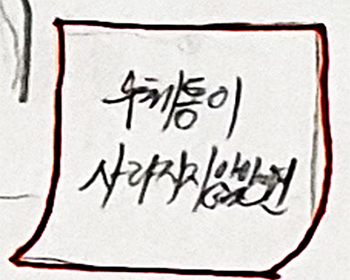 우체통이
사라지지않았던